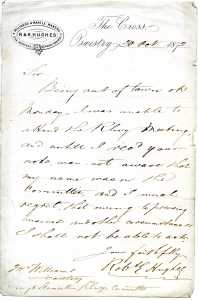 MILLINERY & MANTLE ROOMS
R & R HUGHES
The Cross,
Oswestry, 20 Oct. 187
Sir
Being out of town on
Monday I was unable to
attend the Meeting
and until I read your
note was not aware that
my name was on the
Committee and I much
regret that owing to pressing
business and other circumstances
I shall not be able to act.
Yours faithfully
Robt Hughes
Mr Williams
Committee